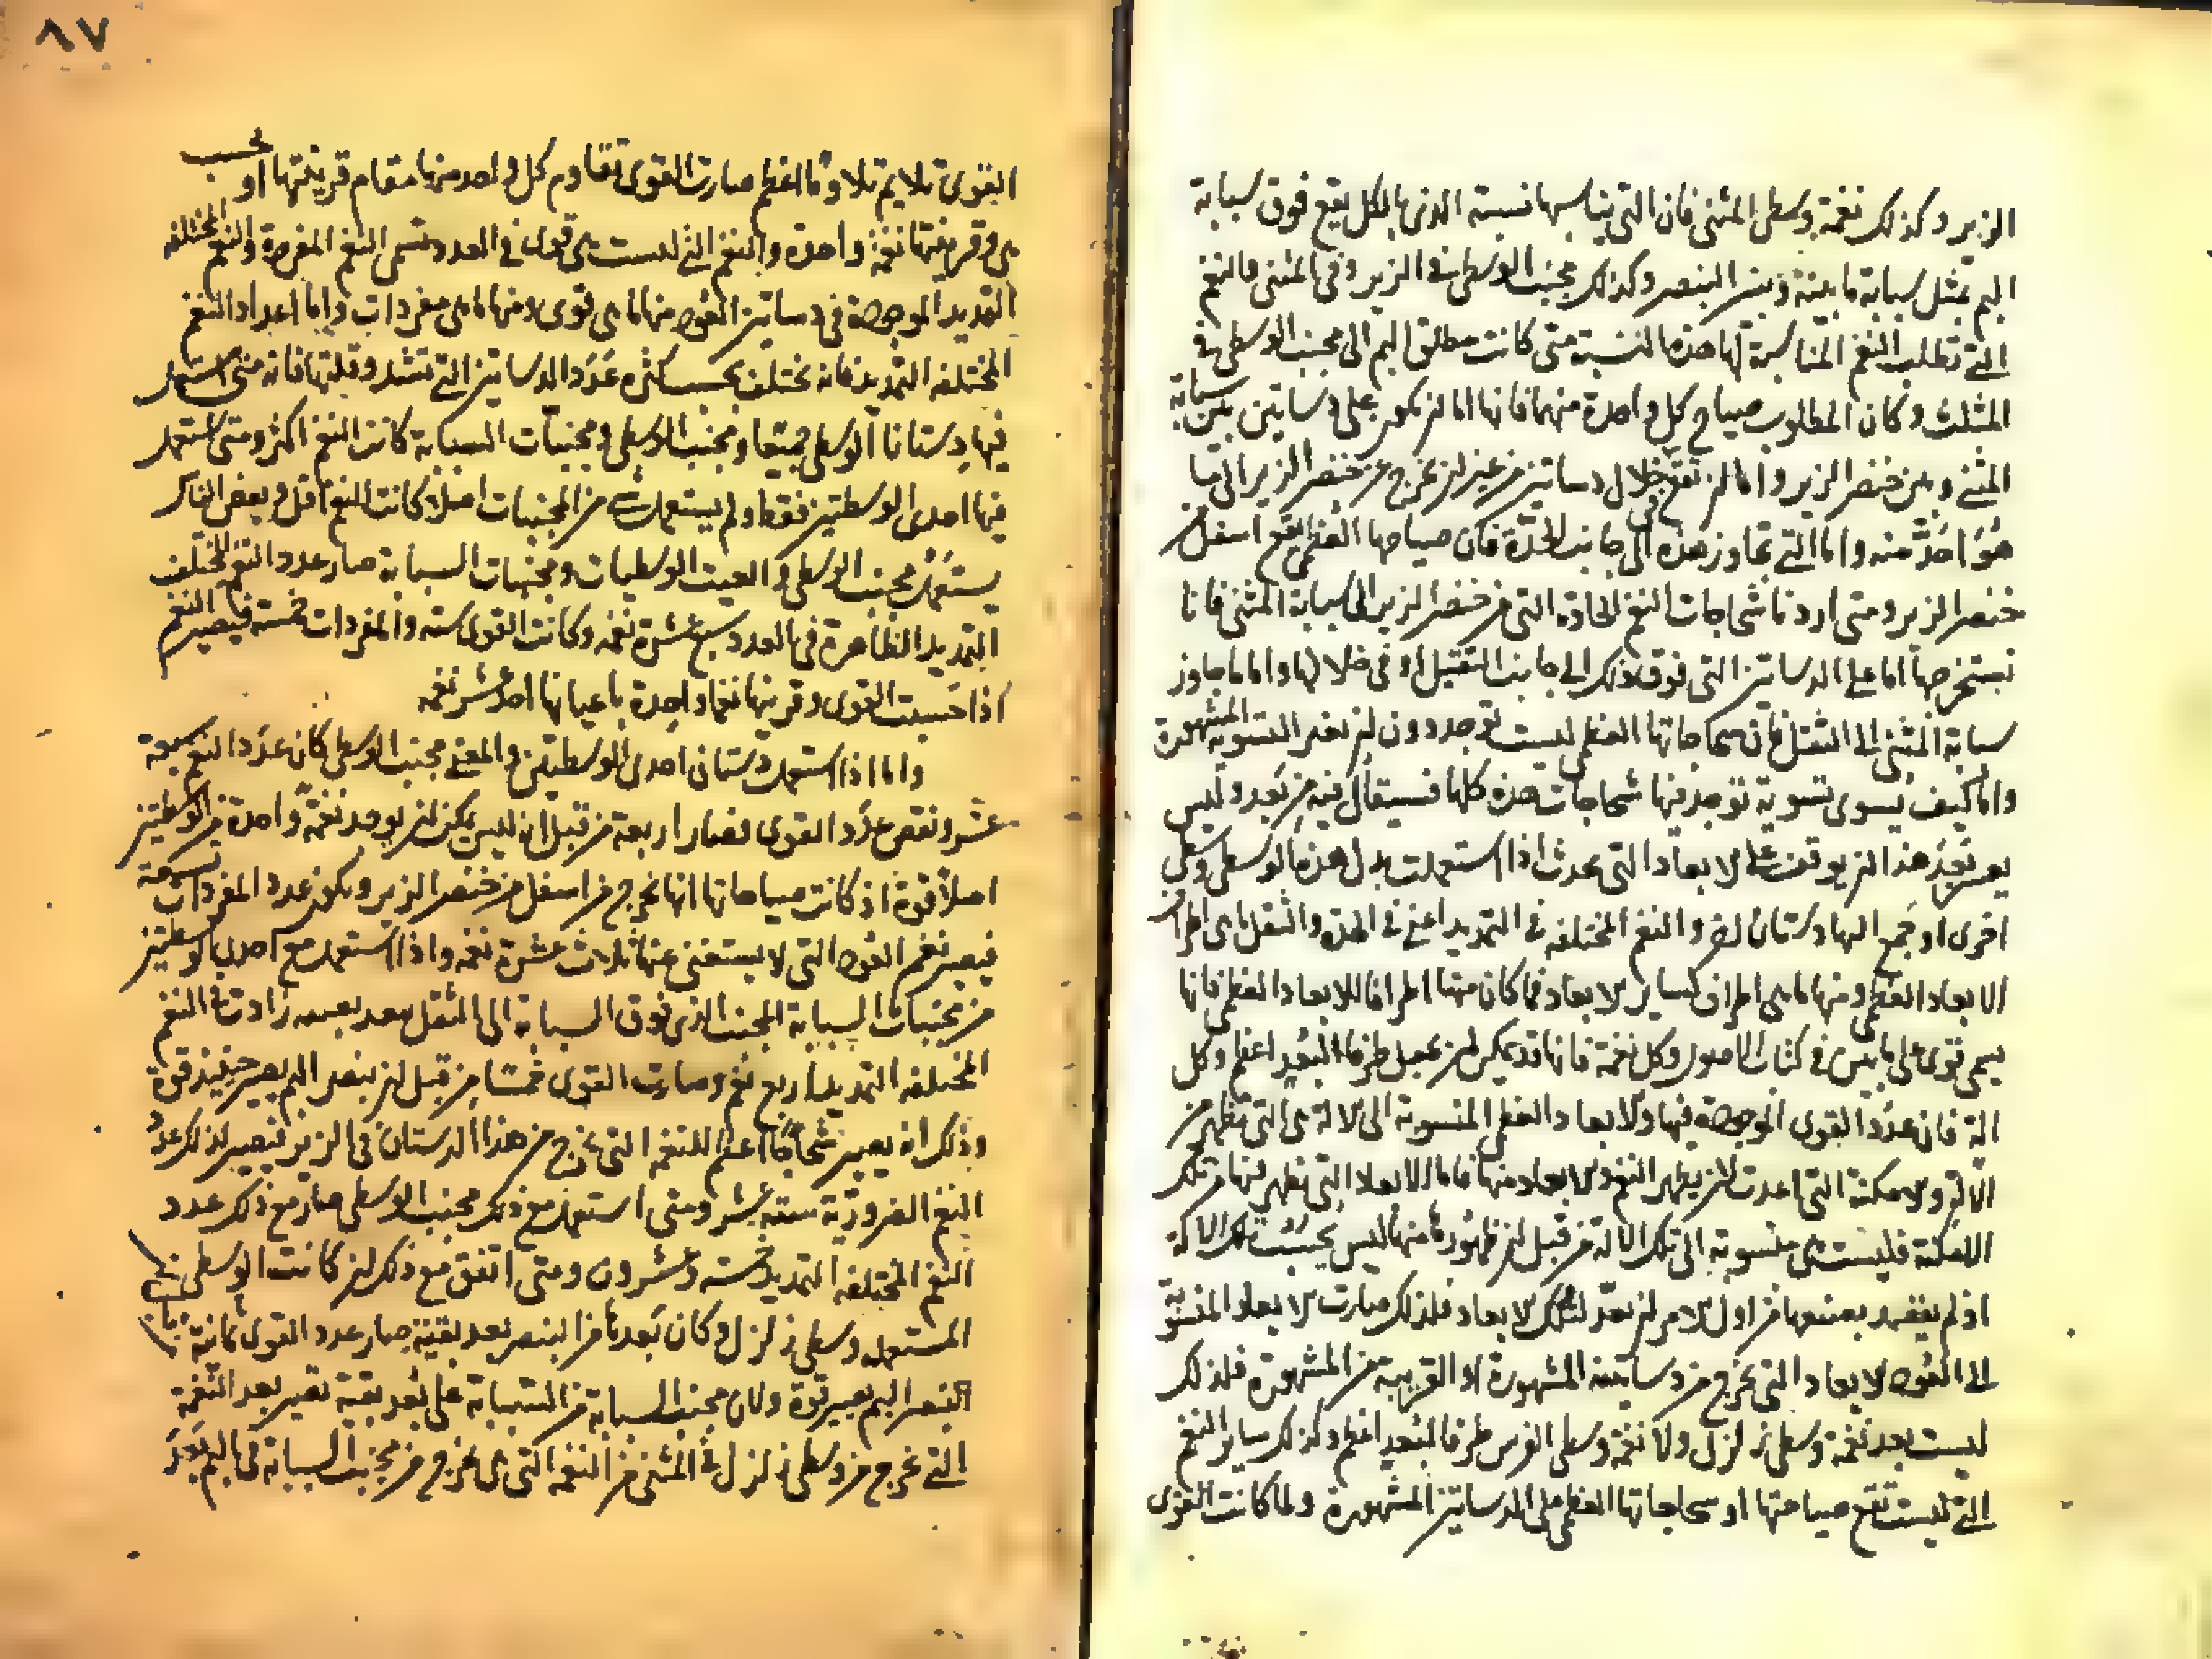 الزير وكذلك نغمة وسطى المثنى فان التي يناسبها نسبة الذي بالكل يقع فوق سبابة
البم بمثل سبابة ما بينه وبين البنصر وكذلك مجنب الوسطى في الزير وفي المثنى فالنغم
التي تطلب النغم المناسبة لها هذه النسبة متى كانت مطلق البم الى مجنب الوسطى في
المثلث وكان المطلوب صياح كل واحدة منها فانها اما ان يكون على دساتين بين سبابة
المثنى وبين خنصر الزير واما ان تقع في خلال دساتين من غير ان تخرج عن خنصر الزير الى ما
هو احد منه واما التي تجاوز هذه الى جانب الحدة فان صياحها العظمى يقع اسفل من
خنصر الزير ومتى اردنا شحاجات النغم الحادة التي من خنصر الزير الى سبابة المثنى فانا
نستخرجها اما على الدساتين التي فوق ذلك الى جانب الثقيل او في خلالها واما ما جاوز
سبابة المثنى الى الثقل فان شحاجاتها العظمى ليست توجد دون ان تغير التسوية المشهورة
واما كيف يسوى تسوية توجد فيها شحاجات هذه كلها فسيقال فيه من بعد وليس
يعسر بعد هذا ان يوقف على الابعاد التي تحدث اذا استعملت بدل هذه الوسطى وسطى
اخرى او جمع اليها دستان اخر والنغم المختلفة في التمديد اعني في الحدة والثقل ما هي اطراف
الابعاد العظمى ومنها ما هي اطراف لساير الابعاد فما كان منها اطرافا للابعاد العظمى فانها
يسمى قوى على ما بين في كتاب الاصول وكل نغمة فانها قد يمكن ان تجعل طرفا لبعد اعظم وكل
الة فان عدد القوى الموجودة فيها والابعاد العظمى المنسوبة الى الالة هي التي تظهر من
الالة والامكنة التي اعدت لان يظهر النغم والابعاد منها فاما الابعاد التي تظهر منها من تلك
الامكنة فليست هي منسوبة الى تلك الالة من قبل ان ظهورها منها ليس بحسب تلك الالة
اذ لم يقصد بصنعها من اول الامر ان تعد لتلك الابعاد فلذلك صارت الابعاد المنسوبة
الى العود الابعاد التي تخرج من دساتينه المشهورة او القريبة من المشهورة فلذلك
ليست بعد نغمة وسطى زلزل ولا نغمة وسطى الفرس طرفا لبعد اعظم وكذلك ساير النغم
التي ليست تقع صياحتها او شحاجاتها العظمى على الدساتين المشهورة ولما كانت القوى
٨٧
القوى تلايم تلاوما اعظم صارت القوى تقاوم كل واحد منها مقام قرينتها او بحسب
هي وقرينتها نغمة واحدة والنغم التي ليست هي قوى في العدد تسمى النغم المفردة والنغم المختلفة
التمديد الموجودة في دساتين العود منها ما هي قوى ومنها ما هي مفردات واما اعداد النغم
المختلفة التمديد فانه يختلف بحسب كثرة عدد الدساتين التي تشد وقلتها فانه متى استعمل
فيها دستانا الوسطى جميعا ومجنب الوسطى ومجنبات السبابة كانت النغم اكثر ومتى استعمل
فيها احدى الوسطتين فقط ولم يستعمل شي من المجنبات اصلا كانت النغم اقل وبعض الناس
يستعمل مجنب الوسطى والغيت الوسطيات ومجنبات السبابة صار عدد النغم المختلف
التمديد الظاهرة في العدد سبع عشرة نغمة وكانت القوى ستة والمفردات خمسة فيصير النغم
اذا حسبت القوى وقرينها نغما واحدة باعيانها احد عشر نغمه
واما اذا استعمل دستان احدى الوسطيين والغي مجنب الوسطى كان عدد النغم سبعة
عشر ونقص عدد القوى فصار اربعة من قبل انه ليس يمكن ان يوجد نغمة واحدة من الوسطتين
اصلا قوة اذ كانت صياحاتها انها تخرج من اسفل من خنصر الزير ويكون عدد المفردات تسعة
فيصير نغم العود التي لا يستغنى عنها ثلاث عشرة نغمه واذا استعمل مع احدى الوسطتين
من مجنبات السبابة المجنب الذي فوق السبابة الى الثقل ببعد بقية زادت النغم
المختلفة التمديد اربع نغم وصارت القوى خمسا من قبل ان بنصر البم يصير حينئذ قوة
وذلك انه يصير شحاجا اعظم للنغمة التي تخرج من هذا الدستان في الزير فيصير لذلك عدد
النغم الضرورية ستة عشر ومتى استعمل مع ذلك مجنب الوسطى صار مع ذلك عدد
النغم المختلفة التمديد خمسة وعشرون ومتى اتفق مع ذلك ان كانت الوسطى
المستعملة وسطى زلزل وكان بعدها من البنصر بعد بقية صار عدد القوى ثمانية
البنصر البم يصير قوة ولان مجنب السبابة من السبابة على بعد بقية تصير بعد النغمة
التي تخرج من وسطى زلزل في المثنى من النغمة التي تخرج من مجنب السبابة في البم بعد